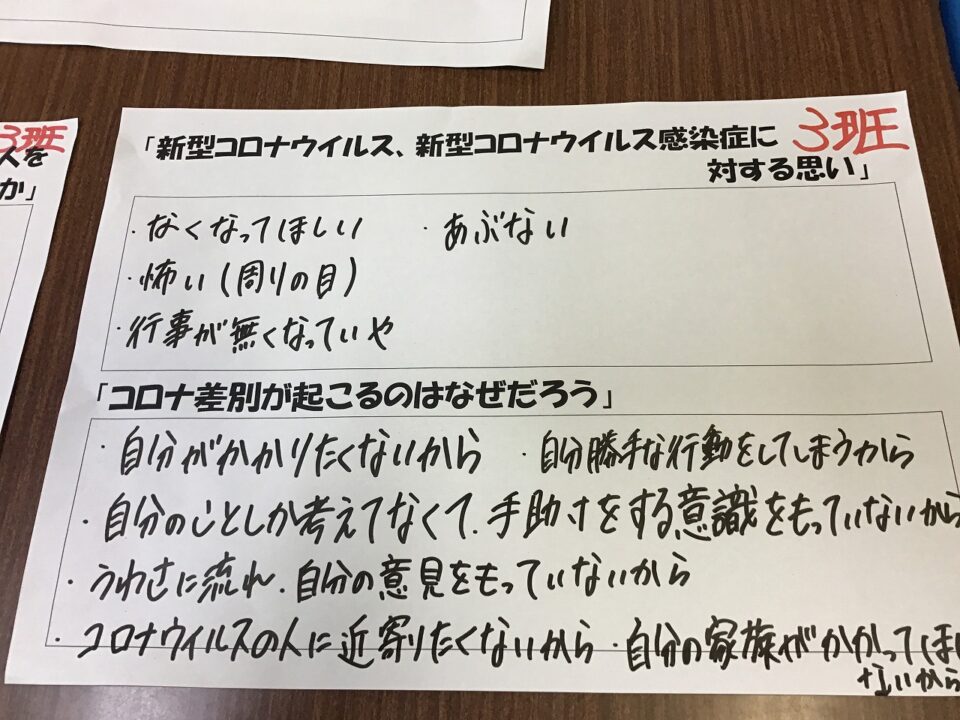 人を
3班
か」
「新型コロナウイルス、新型コロナウイルス感染症に
対する思い」
3班
・なくなってほしい ・あぶない
・怖い(周りの目)
・行事が無くなっていや
「コロナ差別が起こるのはなぜだろう」
・自分がかかりたくないから ・自分勝手な行動をしてしまうから
・自分のことしか考えてなくて、手助けをする意識をもっていないから
・うわさに流れ、自分の意見をもっていないから
・コロナウイルスの人に近寄りたくないから ・自分の家族がかかってほし
くないから